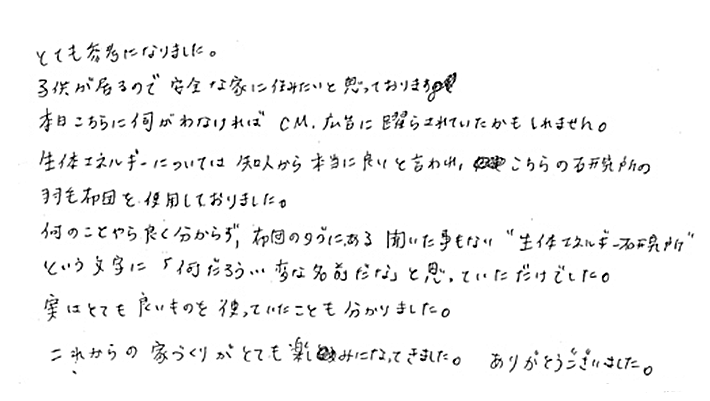 とても参考になりました。
子供が居るので安全な家に住みたいと思っております
本日こちらに伺がわなければCM、広告に踊らされていたかもしれません。
生体エネルギーについては知人から本当に良いと言われ、こちらの研究所の
羽毛布団を使用しておりました。
何のことやら良く分からず、布団のタグにある聞いた事もない“生体エネルギー研究所”
という文字に「何だろう…変な名前だな」と思っていただけでした。
実はとても良いものを使っていたことも分かりました。
これからの家づくりがとても楽しみになってきました。ありがとうございました。